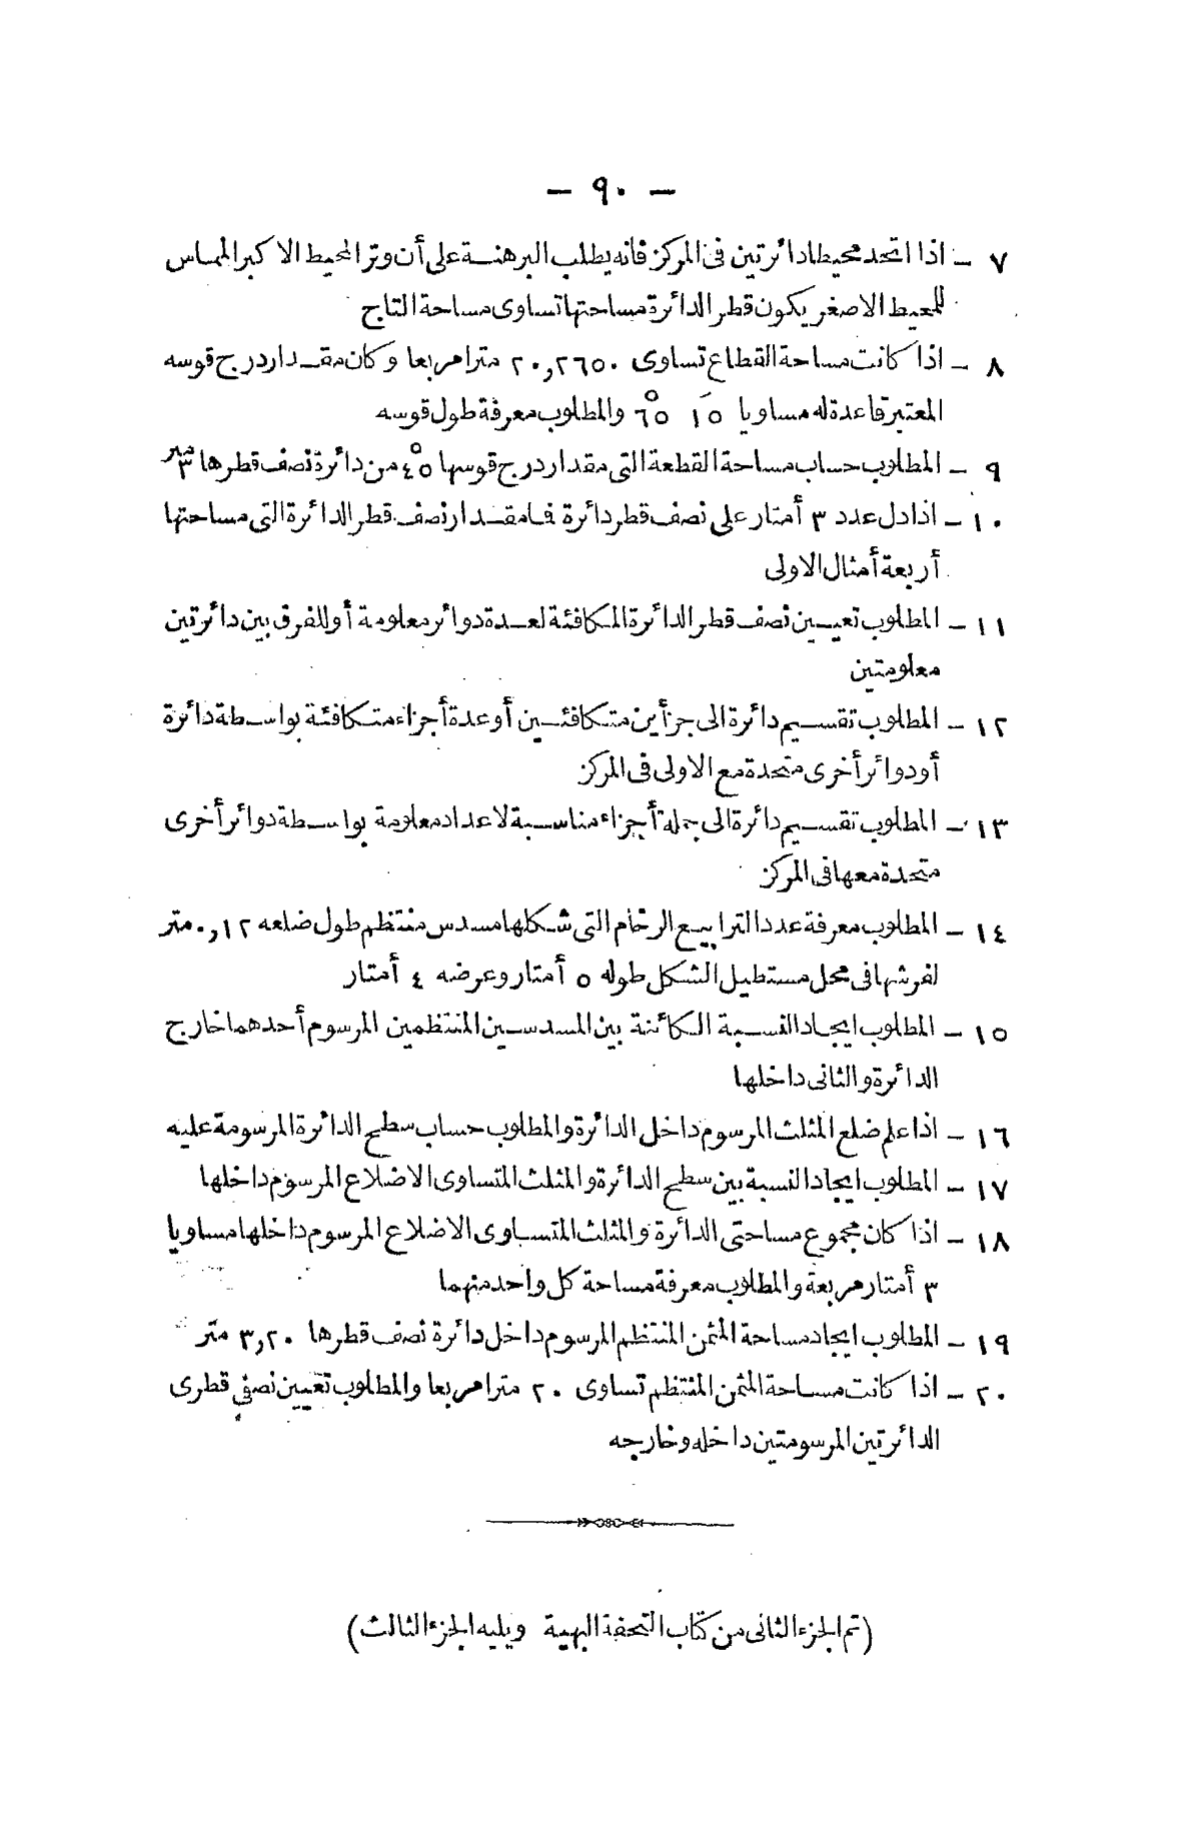 — ٩٠ —
٧ — اذا اتحد محيطا دائرتين فى المركز فانه يطلب البرهنة على أن وتر المحيط الاكبر المماس
للمحيط الاصغر يكون قطر الدائرة مساحتها تساوى مساحة التاج
٨ — اذا كانت مساحة القطاع تساوى ٢٠,٢٦٥٠ مترا مربعا وكان مقدار درج قوسه
المعتبر قاعدة له مساويا ١٥َ ٦٥° والمطلوب معرفة طول قوسه
٩ — المطلوب حساب مساحة القطعة التى مقدار درج قوسها ٤٥° من دائرة نصف قطرها ٣ متر
١٠ — اذا دل عدد ٣ أمتار على نصف قطر دائرة فما مقدار نصف قطر الدائرة التى مساحتها
أربعة أمثال الاولى
١١ — المطلوب تعيين نصف قطر الدائرة المكافئة لعدة دوائر معلومة أو للفرق بين دائرتين
معلومتين
١٢ — المطلوب تقسيم دائرة الى جزأين متكافئين أو عدة أجزاء متكافئة بواسطة دائرة
أو دوائر أخرى متحدة مع الاولى فى المركز
١٣ — المطلوب تقسيم دائرة الى جملة أجزاء مناسبة لاعداد معلومة بواسطة دوائر أخرى
متحدة معها فى المركز
١٤ — المطلوب معرفة عدد الترابيع الرخام التى شكلها مسدس منتظم طول ضلعه ٠,١٢ متر
لفرشها فى محل مستطيل الشكل طوله ٥ أمتار وعرضه ٤ أمتار
١٥ — المطلوب ايجاد النسبة الكائنة بين المسدسين المنتظمين المرسوم أحدهما خارج
الدائرة والثانى داخلها
١٦ — اذا علم ضلع المثلث المرسوم داخل الدائرة والمطلوب حساب سطح الدائرة المرسومة عليه
١٧ — المطلوب ايجاد النسبة بين سطح الدائرة والمثلث المتساوى الاضلاع المرسوم داخلها
١٨ — اذا كان مجموع مساحتى الدائرة والمثلث المتساوى الاضلاع المرسوم داخلها مساويا
٣ أمتار مربعة والمطلوب معرفة مساحة كل واحد منهما
١٩ — المطلوب ايجاد مساحة المثمن المنتظم المرسوم داخل دائرة نصف قطرها ٣,٢٠ متر
٢٠ — اذا كانت مساحة المثمن المنتظم تساوى ٢٠ مترا مربعا والمطلوب تعيين نصفى قطرى
الدائرتين المرسومتين داخله وخارجه
(تم الجزء الثانى من كتاب التحفة البهية ويليه الجزء الثالث)